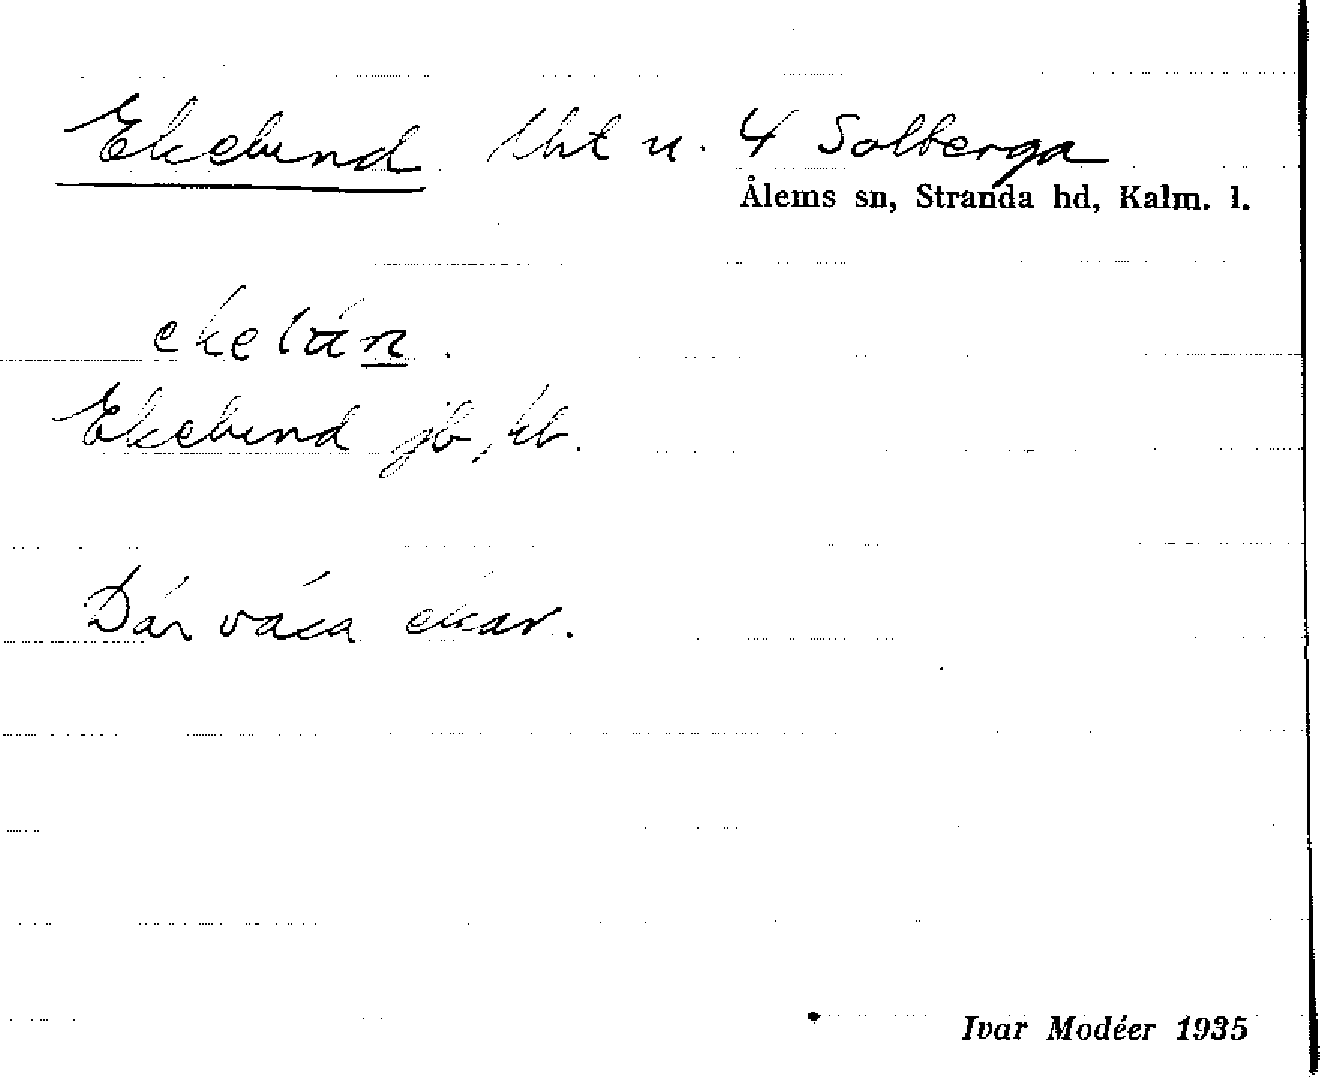 Ekelund lht u. 4 Solberga
Ålems sn, Stranda hd, Kalm. l.
Ekelund jb, kb.
Där växa ekar.
Ivar Modéer 1935